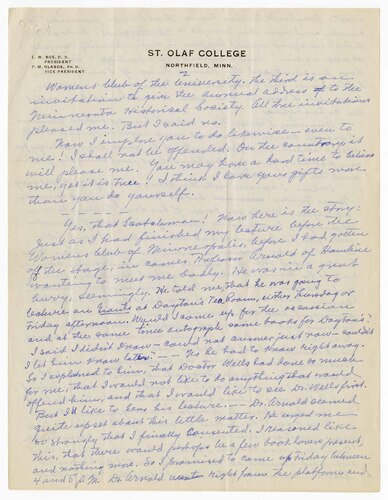 L. W. BOE, D. D.
PRESIDENT
VICE PRESIDENT
ST. OLAF COLLEGE
NORTHFIELD, MINN.
Womens Club of the University. The third is an
invitation to give the annual address to the
Minnesota Historical Society. All three invitations
pleased me. But I said no.
Now I implore you to do likewise - even to
me! I shall not be offended. On the contrary it
will please me. You may have a hard time to believe
me, yet it is true! I think I love your gifts more
than you do yourself.
Yes, that Scotchman! Now here is the story:
Just as I had finished my lecture before the
Womens Club of Minneapolis, before I had gotten
off the stage, in came Professor Arnold of Hamline
wanting to meet me badly. He was in a great
hurry, seemingly. He told me, that he was going to
lecture on Giants at Dayton's Tea Room, either Thursday or
Friday afternoon. Would I come up for the occasion
and at the same time autograph some books for Dayton's?
I said I didn't know - could not answer just now - couldn't
I let him know later? -- No he had to know right away.
So I explained to him, that Doctor Wells had done so much
for me, that I would not like to do anything that would
offend him, and that I would like to see Dr. Wells first.
But I'd like to hear his lecture. — Dr. Arnold seemed
quite upset about this little matter. He urged me
so strongly that I finally consented. I reasoned like
this, that there would perhaps be a few book lovers present,
and nothing more. So I promised to come up Friday between
4 and 5 P.M. Dr. Arnold went right from the platform and